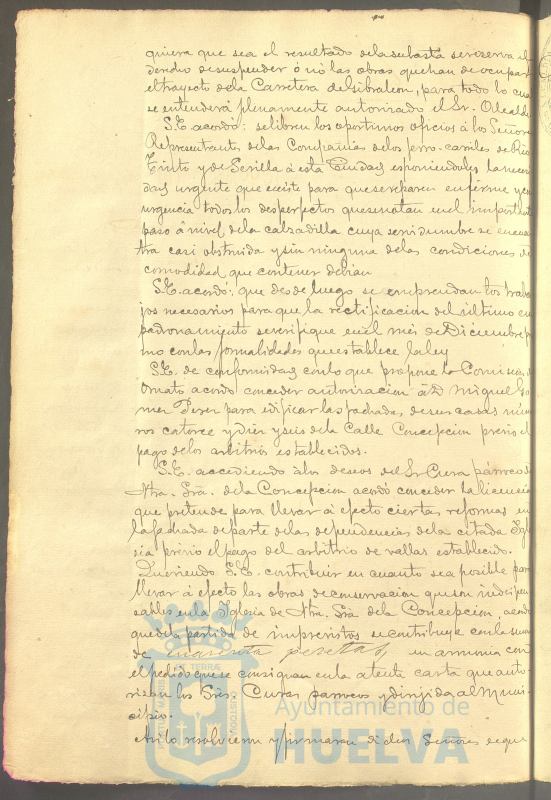 quiera que sea el resultado dela subasta se reserva el
derecho de suspender ó nó las obras que han de ocupar
el trayecto dela Carretera de Gibraleon, para todo lo cual
se entenderá plenamente autorizado el Sr. Alcalde
S.E. acordó: se libren los oportunos oficios á los Señores
Representantes delas Compañias delos ferro-carriles de Rio
Tinto y de Sevilla á esta Ciudad esponiendoles la nece
dad urgente que existe para que se reparen en firme y con
urgencia todos los desperfectos que se notan en el importante
paso á nivel dela calzadilla cuya servidumbre se encuen
tra casi obstruida y sin ninguna delas condiciones de
comodidad que contener debian
S.E. acordó: que desde luego se emprendan los traba
jos necesarios para que la rectificacion del último em
padronamiento se verifique en el mes de Diciembre
mo con las formalidades que establece la ley
S.E. de conformidad con lo que propone la Comision de
Ornato acordó conceder autorizacion á D. Miguel Go
mez Perez para edificar las fachadas de sus casas núme
ros catorce y diez y seis dela Calle Concepcion previo el
pago delos arbitrios establecidos.
S.E. accediendo á los deseos del Sr Cura párroco de
Ntra. Sra. dela Concepcion acordó conceder la licencia
que pretende para llevar á efecto ciertas reformas en
la fachada de parte delas dependencias dela citada Igle
sia previo el pago del arbitrio de vallas establecido.
Queriendo S.E. contribuir en cuanto sea posible para
llevar á efecto las obras de conservacion que son indispen
sables en la Iglesia de Ntra. Sra. dela Concepcion acordó
que dela partida de imprevistos se contribuya con la suma
de cuarenta pesetas, en armonia con
el pedido que se consigna en la atente carta que auto
rizan los Sres. Curas parrocos y dirijida al Muni
cipio.
Asi lo resolvieron y firmaron dichos Señores de que
Ayuntamiento de
HUELVA